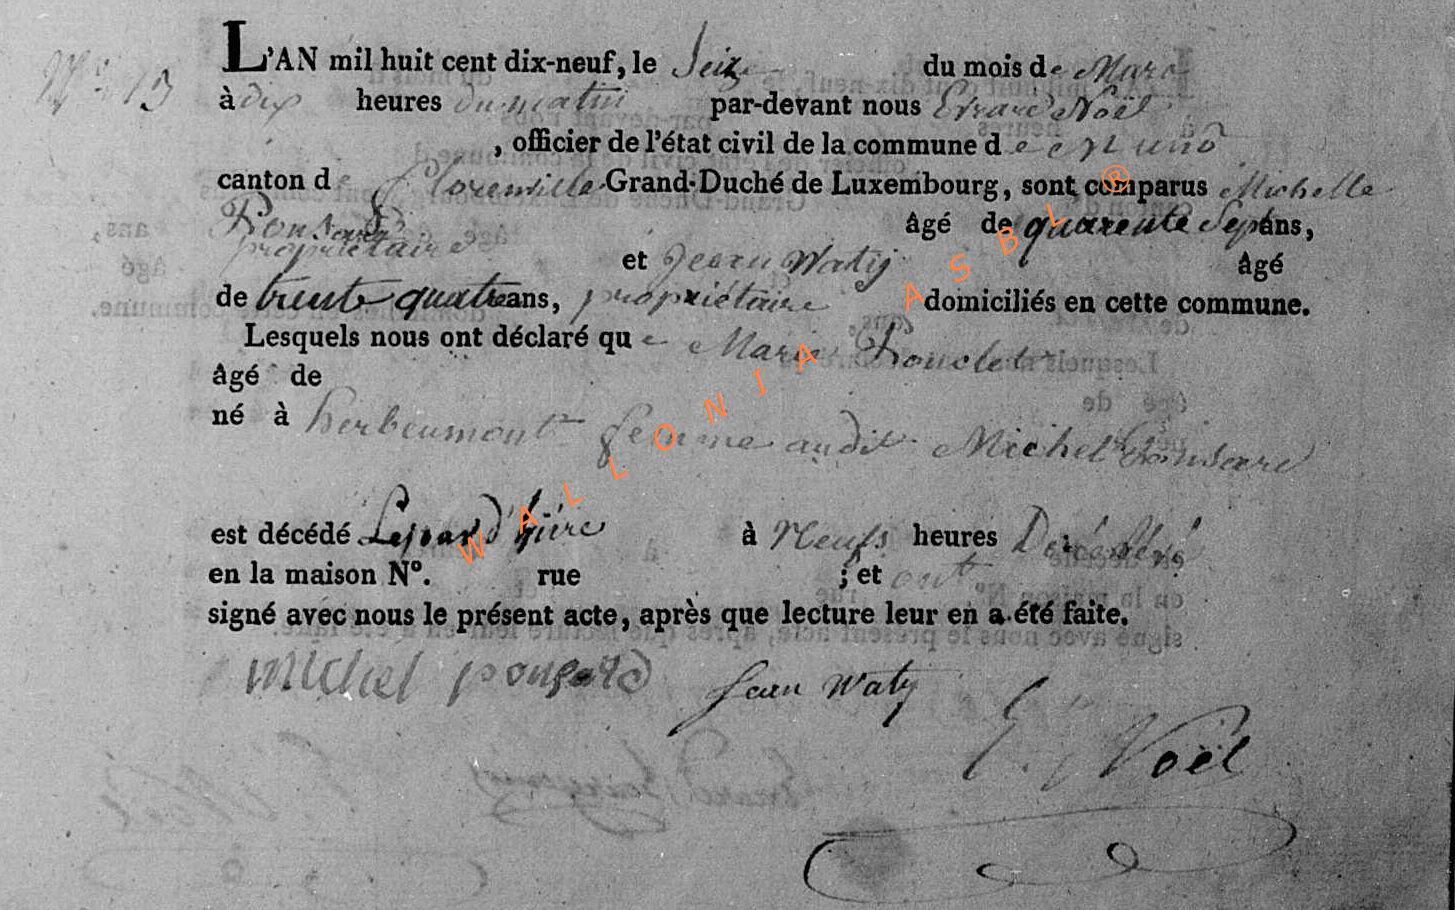 N.° 13
L'AN mil huit cent dix-neuf, le Seize du mois de Mars
à dix heures du matin par-devant nous Evrard Noël
, officier de l'état civil de la commune de Muno
canton de Florenville Grand-Duché de Luxembourg, sont comparus Michelle
Ponsard âgé de quarente Sept ans,
propriétaire et Jean Watij âgé
de trente quatre ans, propriétaire domiciliés en cette commune.
Lesquels nous ont déclaré que Marie
âgé de
né à herbeumont femme audit Michel Ponsard
est décédé Le jour d'hiere à Neufs heures
en la maison N°. rue ; et ont
signé avec nous le présent acte, après que lecture leur en a été faite.
Michel ponsard Jean Watij E Noël
WALLONIA ASBL ®